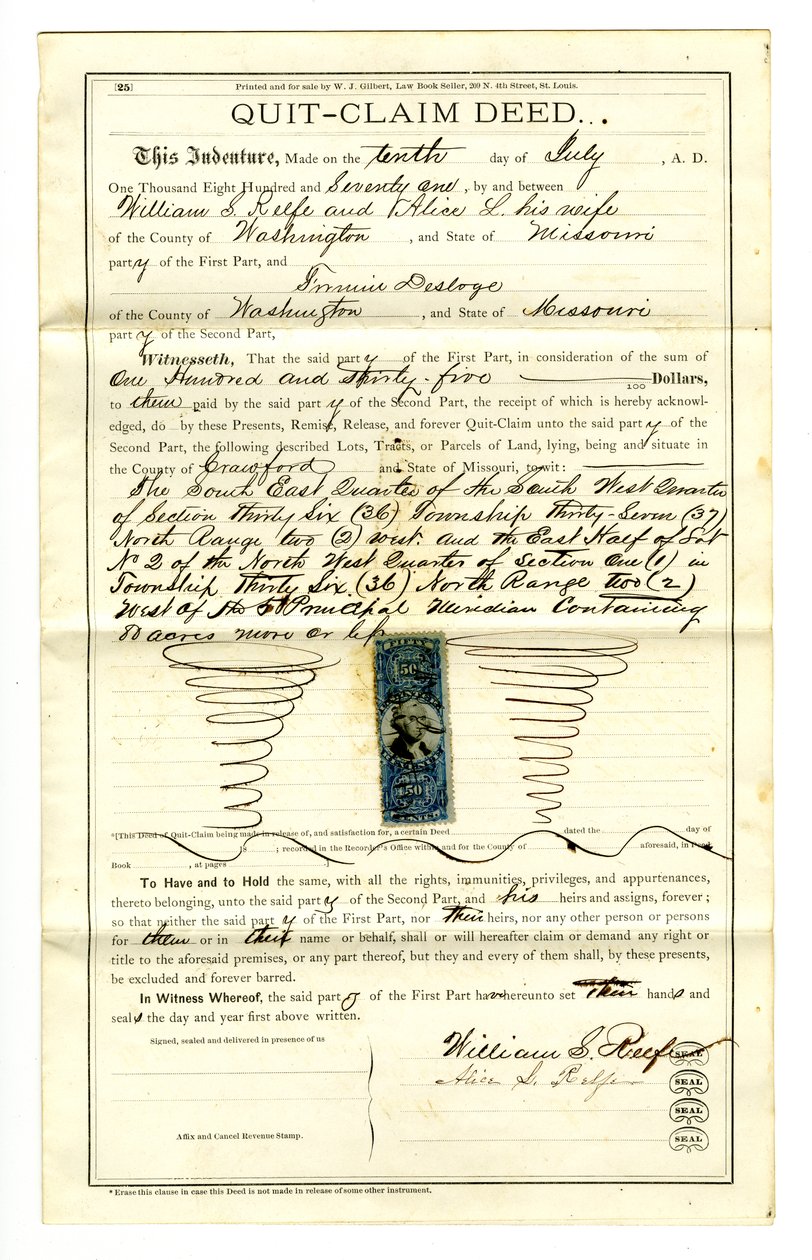 [25] Printed and for sale by W. J. Gilbert, Law Book Seller, 209 N. 4th Street, St. Louis.
QUIT-CLAIM DEED...
This Indenture, Made on the tenth day of July , A. D.
One Thousand Eight Hundred and Seventy one , by and between
William S. Relfe and Alice L. his wife
of the County of Washington , and State of Missouri
party of the First Part, and
Firmin Desloge
of the County of Washington , and State of Missouri
party of the Second Part,
Witnesseth, That the said party of the First Part, in consideration of the sum of
One Hundred and Thirty-five 100 Dollars,
to them paid by the said party of the Second Part, the receipt of which is hereby acknowl-
edged, do by these Presents, Remise, Release, and forever Quit-Claim unto the said party of the
Second Part, the following described Lots, Tracts, or Parcels of Land, lying, being and situate in
the County of Crawford and State of Missouri, to wit:
The South East Quarter of the South West Quarter
of Section Thirty Six (36) Township Thirty-Seven (37)
North Range two (2) west. and the East Half of Lot
No 2 of the North West Quarter of Section One (1) in
Township Thirty Six (36) North Range two (2)
West of the 5th Principal Meridian Containing
80 acres more or less
FIFTY
50
50
CENTS
*[This Deed of Quit-Claim being made in release of, and satisfaction for, a certain Deed dated the day of
18 ; recorded in the Recorder's Office within and for the County of aforesaid, in Deed
Book , at pages .]
To Have and to Hold the same, with all the rights, immunities, privileges, and appurtenances,
thereto belonging, unto the said party of the Second Part, and his heirs and assigns, forever;
so that neither the said party of the First Part, nor their heirs, nor any other person or persons
for them or in their name or behalf, shall or will hereafter claim or demand any right or
title to the aforesaid premises, or any part thereof, but they and every of them shall, by these presents,
be excluded and forever barred.
In Witness Whereof, the said party of the First Part have hereunto set their hands and
seals the day and year first above written.
Signed, sealed and delivered in presence of us
William S. Relfe SEAL
Alice L. Relfe SEAL
SEAL
Affix and Cancel Revenue Stamp. SEAL
* Erase this clause in case this Deed is not made in release of some other instrument.